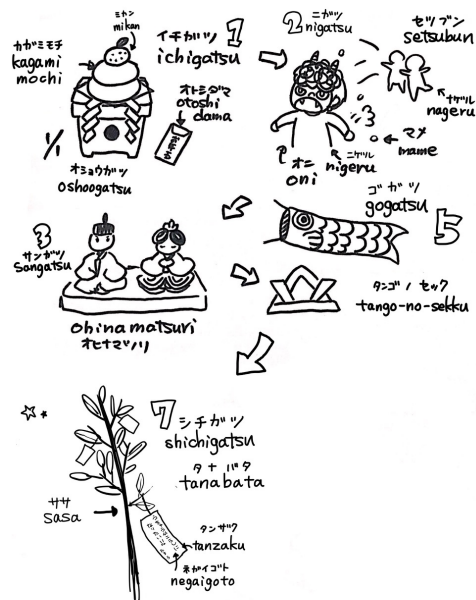 ミカン
mikan
カガミモチ
kagami
mochi
イチガツ
ichigatsu
1
オトシダマ
otoshi
dama
1/1
オショウガツ
oshoogatsu
2
ニガツ
nigatsu
セツブン
setsubun
ナゲル
nageru
マメ
mame
オニ
oni
ニゲル
nigeru
3
サンガツ
Sangatsu
ohinamatsuri
オヒナマツリ
ゴガツ
gogatsu
5
タンゴノセック
tango-no-sekku
7
シチガツ
shichigatsu
タナバタ
tanabata
ササ
sasa
タンザク
tanzaku
ネガイゴト
negaigoto